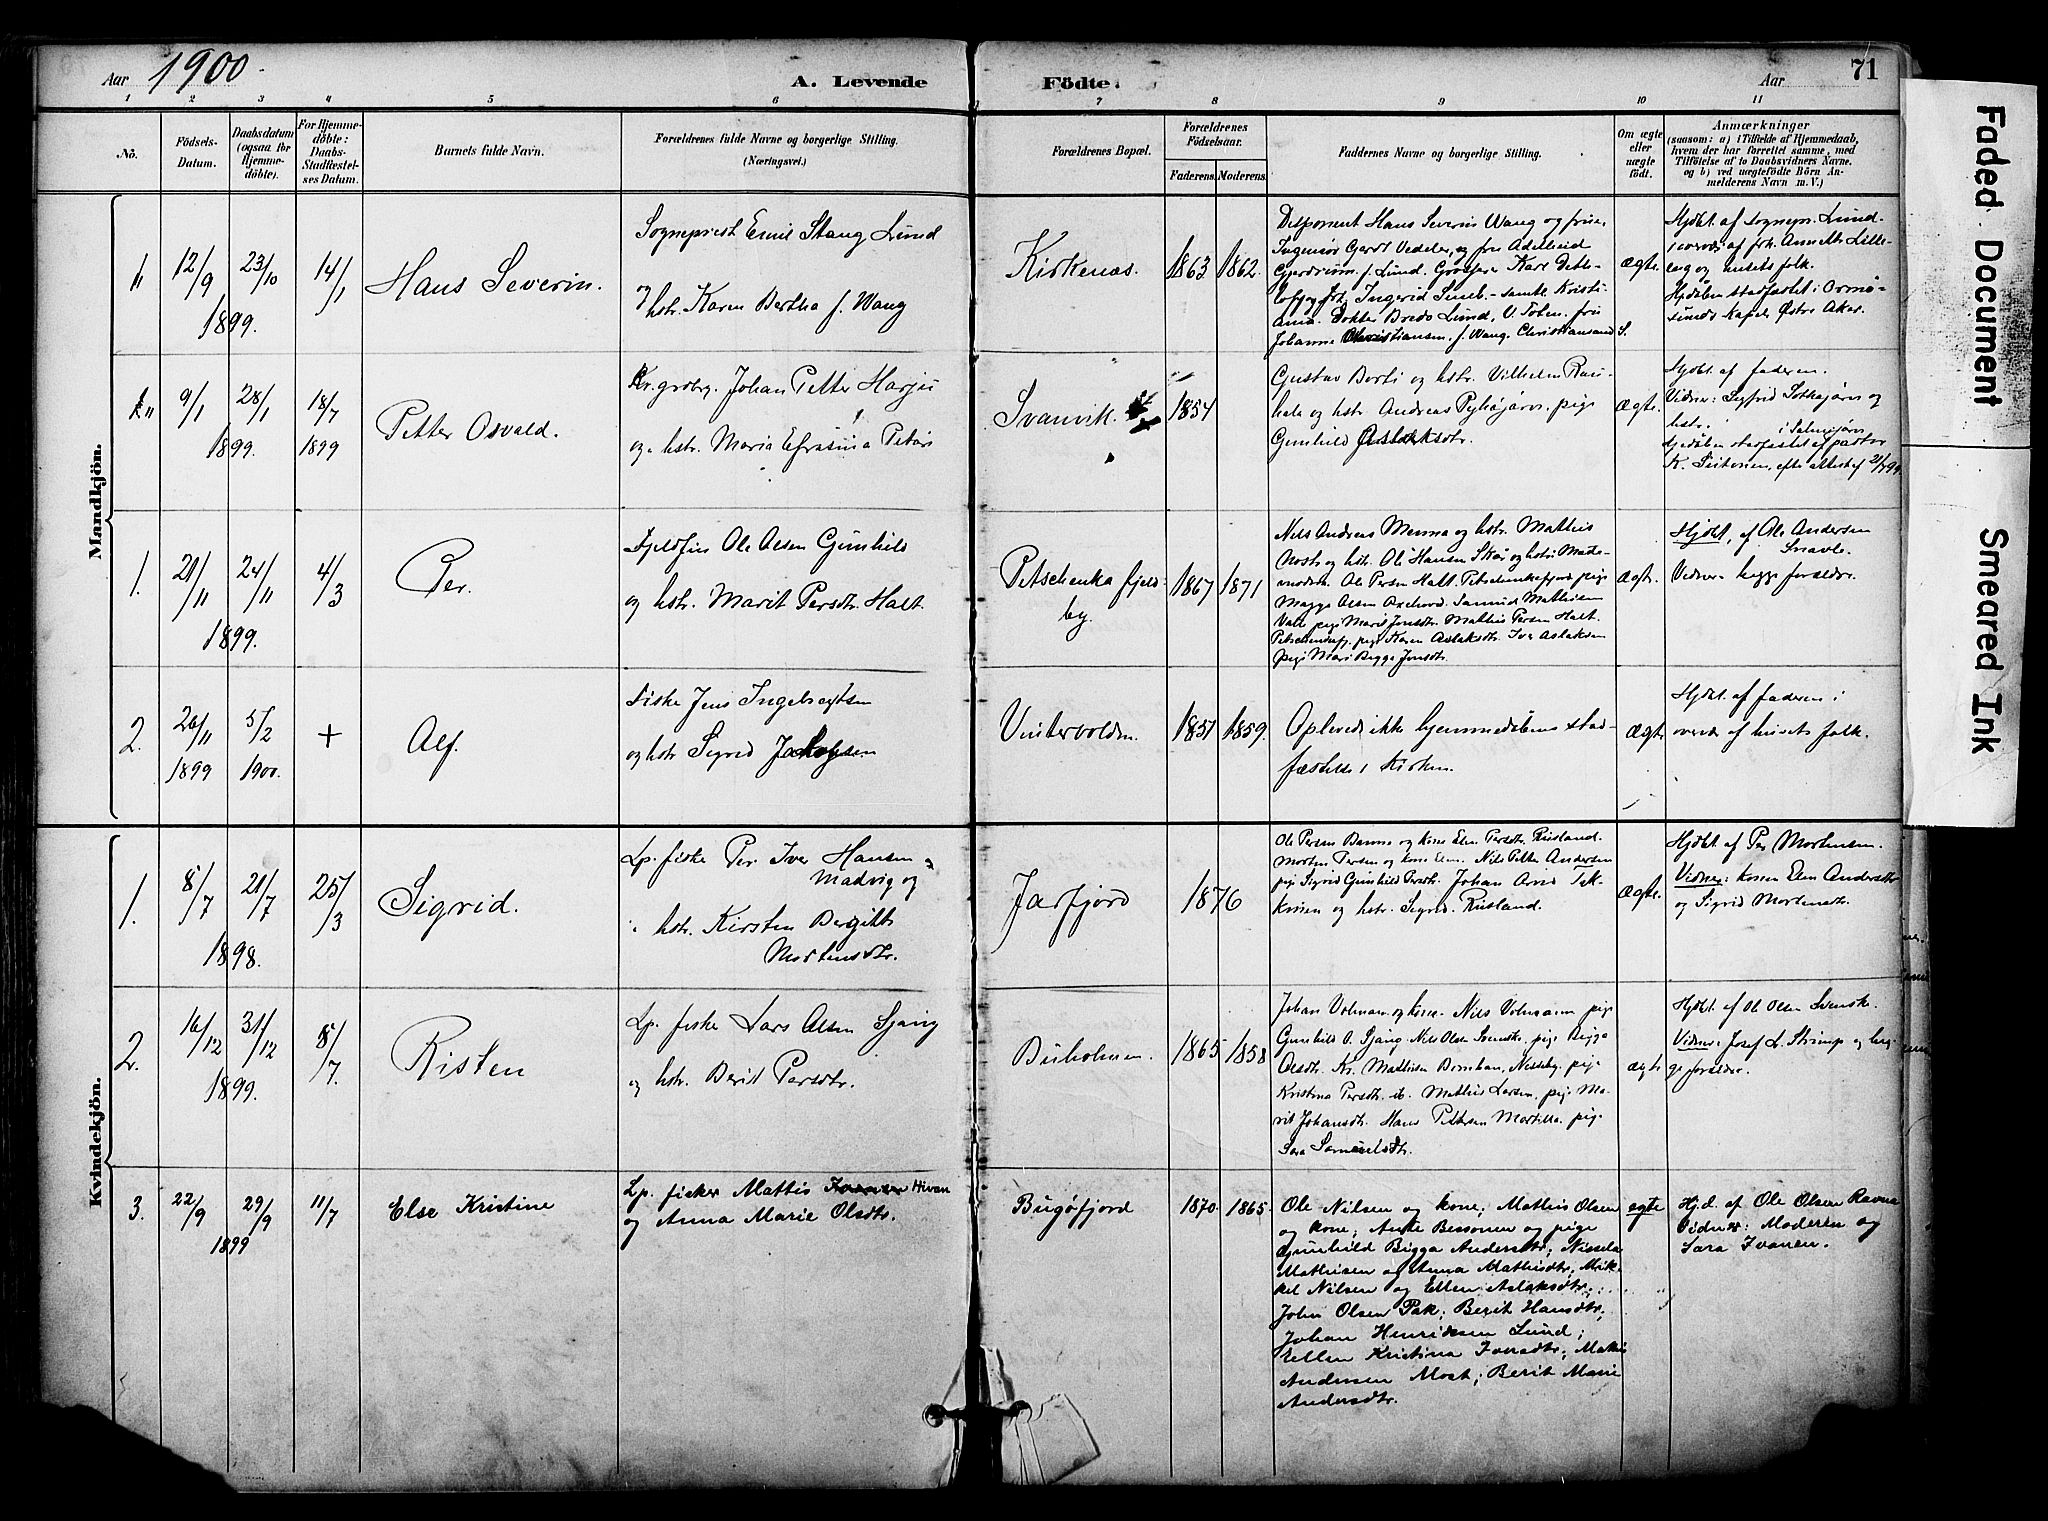 Aar 1900.
A. Levende
Födte.
Aar
71
1 2 3 4 5 6 7 8 9 10 11
No.
Födsels-
Datum.
Daabsdatum
(ogsaa for
Hjemme-
döbte).
For Hjemme-
döbte:
Daabs-
Stadfæstel-
ses Datum.
Barnets fulde Navn.
Forældrenes fulde Navne og borgerlige Stilling.
(Næringsvei.)
Forældrenes Bopæl.
Forældrenes
Födselsaar.
Faderens. Moderens.
Faddernes Navne og borgerlige Stilling.
Om ægte
eller
uægte
födt.
Anmærkninger
(saasom: a) i Tilfælde af Hjemmedaab,
hvem der har forrettet samme, med
Tilföielse af to Daabsvidners Navne.
og b) ved uægtefödte Börn An-
melderens Navn m. V.)
Mandkjön.
12/9 23/10 14/1
1899.
Hans Severin.
Sogneprest Emil Stang Lund
og hstr. Karen Bertha f. Wang
Kirkenæs.
1863 1862.
Disponent Hans Severin Wang og frue,
Ingeniør Gerdt Vedeler, og fru Adelheid
Gjerdrum f. Lund. Karl Detle-
og frk. Ingerid - samtl. Kristi-
ania. Doktor Bredo Lund, fru
Johanne Christiansen, f. Wang, Christiansand S.
Ægte.
Hjdbt. af sognepr. Lund
i overvær af frk. Annette Lille-
og husets folk.
Hjdåben stadfæstet i Ormø-
sunds kapel Østre Aker.
9/1 28/1 18/7
1899. 1899
Petter Osvald.
Johan Petter Harju
og hstr. Maria Efrasina
Svanvik.
1854
Gustav og hstr. Vilhelm Rau-
hala og hstr. Andreas pige
Gunhild Aslaksdtr.
Ægte.
Hjdbt. af faderen.
Vidner: Sigfrid og
hstr. i Salmijärvi
Hjdåben stadfæstet af pastor
K. efter attest af 21/7 99.
1. 21/11 24/11 4/3
1899.
Per.
Fjeldfin Ole Olsen Gunhild
og hstr. Marit Persdtr. Halt.
Petschenka fjeld-
by.
1867 1871
Nils Andreas Menna og hstr. Mathis
og hstr. Ole Hansen og hstr.
Ole Persen Halt. pige
Magga Olsen Samuel Mathisen
pige Marit Jonsdtr. Mathis Persen Halt.
pige Karen Aslaksdtr. Iver Aslaksen
pige Mari Bigga Jonsdtr.
Ægte.
Hjdbt. af Ole Andersen
Vidner begge forældre.
2. 26/11 5/2 +
1899 1900.
Alf.
Fisker Jens Ingebregtsen
og hstr. Sigrid
Vintervolden.
1851 1859.
Oplevede ikke hjemmedåbens stad-
fæstelse i Kirken.
Ægte
Hjdbt. af faderen i
overvær af husets folk.
Kvindekjön.
1. 8/7 21/7 25/3
1898.
Sigrid.
Lp. fisker Per Iver Hansen
Madvig og
hstr. Kirsten Bergitte
Mortensdtr.
Jarfjord
1876
Ole Persen og kone Elen Persdtr. Rusland.
Morten Persen og kone Elen. Nils Petter Andersen
pige Sigrid Gunhild Persdtr. Johan Arvid Isak-
og hstr. Sigrid. Rusland.
Ægte.
Hjdbt. af Per Mortensen.
Vidner: konen Elen Andersdtr
og Sigrid Mortensdtr.
2. 16/12 31/12 8/7.
1899.
Risten
Lp. fisker Lars Olsen Gjang
og hstr. Berit Persdtr.
Buholmen.
1865 1858
Johan Volmann og kone. Nils Volmann pige
Gunhild O. Gjang. Nils Olsen Svensk. pige Bigga
Olsdtr. Kr. Mathisen Nesseby. pige
Kristina Persdtr. ib. Mathis Larsen, pige Ma-
rit Johansdtr. Hans Pettersen pige
Sara Samuelsdtr.
ægte
Hjdbt. af Ol Olsen Svensk.
Vidner: Josef L. Strimp og beg-
ge forældre.
3. 22/9 29/9 11/7
1899
Else Kristine
Lp. fisker Mattis Ivanen Hivan
og Anna Marie Olsdtr.
Bugöfjord
1870. 1865.
Ole Nilsen og kone; Mathis Olsen
og kone; Bessonen og pige
Gunhild Bigga Andersdtr;
Mathisen og Anna Mathisdtr; Mik-
kel Nilsen og Ellen Aslaksdtr;
John Olsen Pak; Berit Hansdtr;
Johan Henriksen Lund;
Ellen Kristina Ivarsdtr; Mathis
Andersen Most; Berit Marie
Andersdtr.
egte
Hj.d. af Ole Olsen Ravna
Vidner: Moderen og
Sara Ivanen.
Faded Document
Smeared Ink